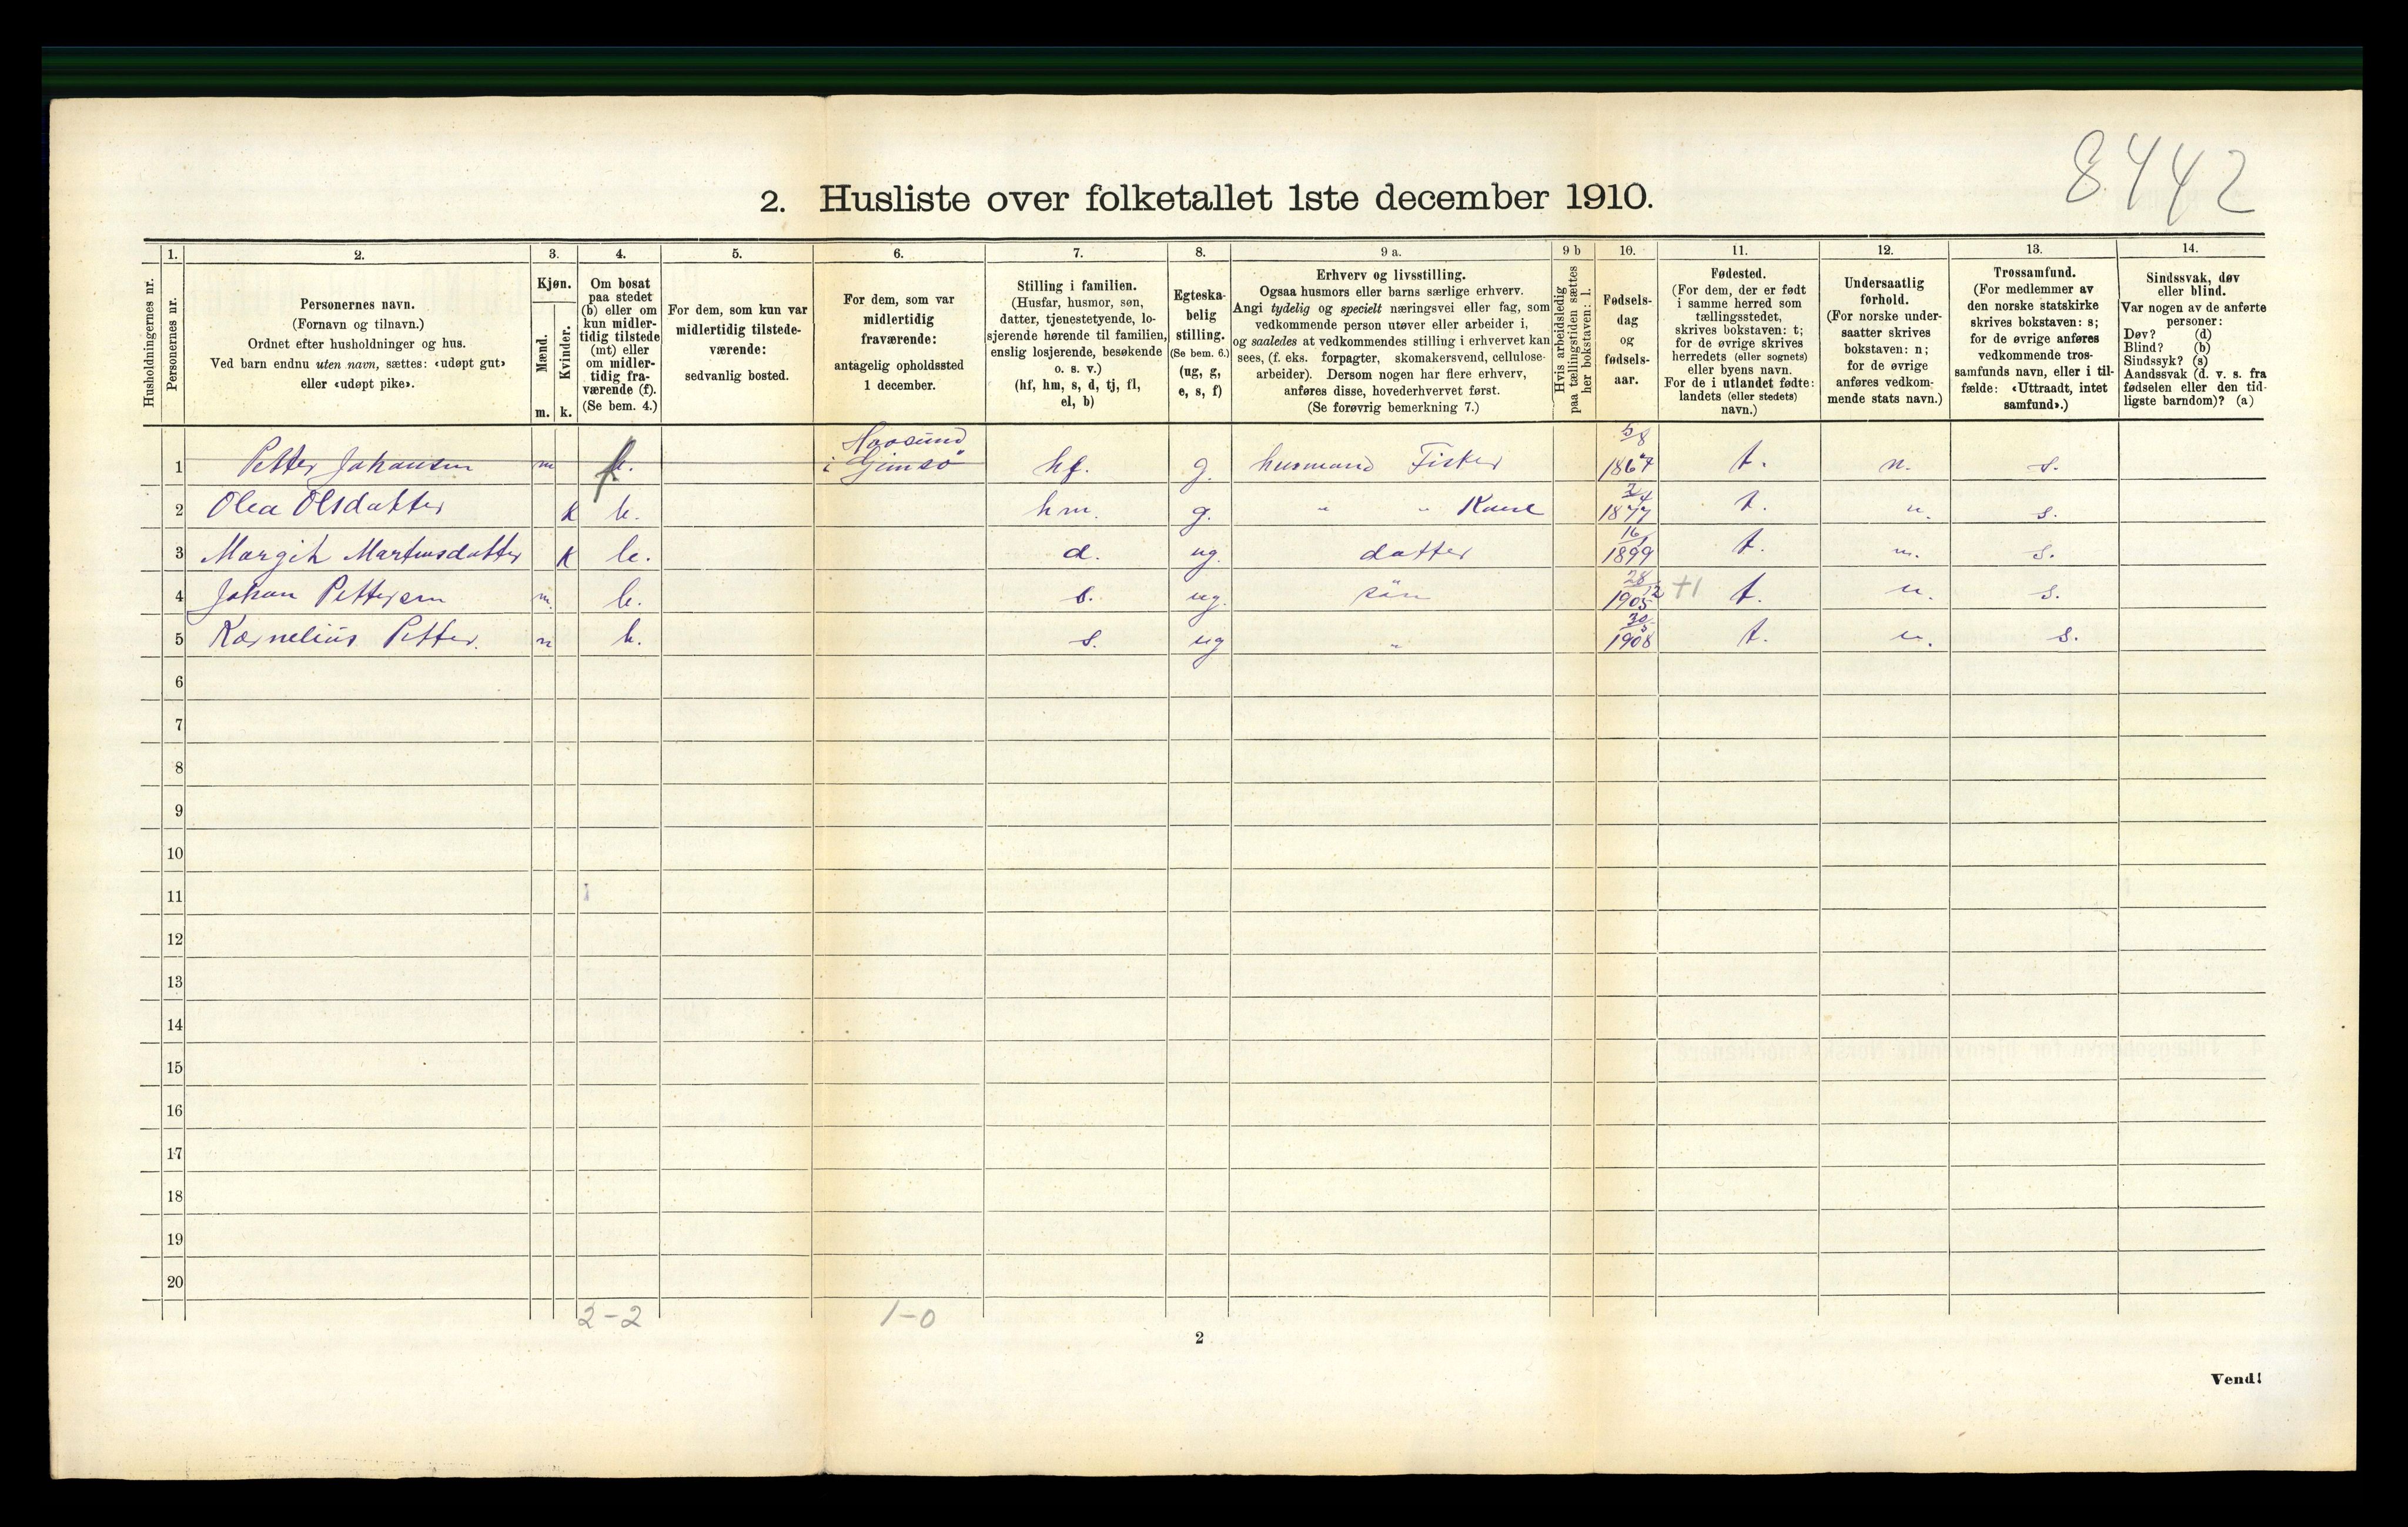 8442
2. Husliste over folketallet 1ste december 1910.
Husholdningernes nr.
1.
Personernes nr.
2.
Personernes navn.
(Fornavn og tilnavn.)
Ordnet efter husholdninger og hus.
Ved barn endnu uten navn, sættes: «udøpt gut»
eller «udøpt pike».
3.
Kjøn.
Mænd.
Kvinder.
m. k.
4.
Om bosat
paa stedet
(b) eller om
kun midler-
tidig tilstede
(mt) eller
om midler-
tidig fra-
værende (f).
(Se bem. 4.)
5.
For dem, som kun var
midlertidig tilstede-
værende:
sedvanlig bosted.
6.
For dem, som var
midlertidig
fraværende:
antagelig opholdssted
1 december.
7.
Stilling i familien.
(Husfar, husmor, søn,
datter, tjenestetyende, lo-
sjerende hørende til familien,
enslig losjerende, besøkende
o. s. v.)
(hf, hm, s, d, tj, fl,
el, b)
8.
Egteska-
belig
stilling.
(Se bem. 6.)
(ug, g,
e, s, f)
9 a.
Erhverv og livsstilling.
Ogsaa husmors eller barns særlige erhverv.
Angi tydelig og specielt næringsvei eller fag, som
vedkommende person utøver eller arbeider i,
og saaledes at vedkommendes stilling i erhvervet kan
sees, (f. eks. forpagter, skomakersvend, cellulose-
arbeider). Dersom nogen har flere erhverv,
anføres disse, hovederhvervet først.
(Se forøvrig bemerkning 7.)
9 b
Hvis arbeidsledig
paa tællingstiden sættes
her bokstaven: l.
10.
Fødsels-
dag
og
fødsels-
aar.
11.
Fødested.
(For dem, der er født
i samme herred som
tællingsstedet,
skrives bokstaven: t;
for de øvrige skrives
herredets (eller sognets)
eller byens navn.
For de i utlandet fødte:
landets (eller stedets)
navn.)
12.
Undersaatlig
forhold.
(For norske under-
saatter skrives
bokstaven: n;
for de øvrige
anføres vedkom-
mende stats navn.)
13.
Trossamfund.
(For medlemmer av
den norske statskirke
skrives bokstaven: s;
for de øvrige anføres
vedkommende tros-
samfunds navn, eller i til-
fælde: «Uttraadt, intet
samfund».)
14.
Sindssvak, døv
eller blind.
Var nogen av de anførte
personer:
Døv? (d)
Blind? (b)
Sindssyk? (s)
Aandssvak (d. v. s. fra
fødselen eller den tid-
ligste barndom)? (a)
1 Petter Johansen m f. i Gimsö hf. g. husmand Fisker 5/8 1867 t. n. s.
2 Olea Olsdatter k b. hm. g. " " Kone 1877 t. n. s.
3 Margit Martinsdatter k b. d. ug. datter 1899 t. n. s.
4 Johan Pettersen m. b. s. ug. sön 28/12 1905 +1 t. n. s.
5 Kornelius Petter. m b. s. ug " 1908 t. n. s.
6
7
8
9
10
11
12
13
14
15
16
17
18
19
20
2-2 1-0
2
Vend!